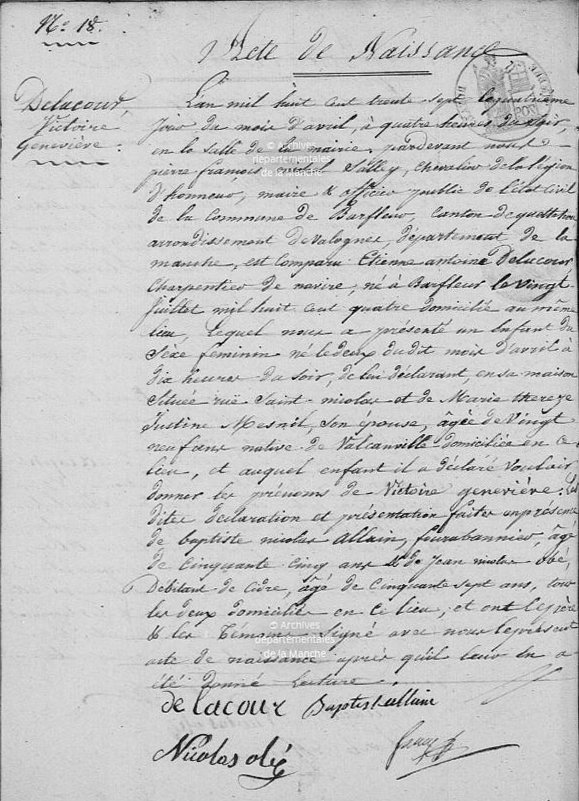 N.° 18.
Acte de Naissance
Delacour,
Victoire
Geneviève.
L'an mil huit cent trente sept le
jour du mois d'avril, à quatre heures du soir,
en la salle de la mairie, pardevant nous
pierre françois Salley, chevalier de la légion
d'honneur, maire & officier public de l'état civil
de la Commune de Barfleur, Canton de quettehou
arrondissement de Valognes, département de la
manche, est Comparu Etienne antoine Delacour
Charpentier de navire, né à Barfleur le vingt
juillet mil huit cent quatre domicilié au même
lieu, Lequel nous a présenté un Enfant du
Sèxe feminin né le deux dudit mois d'avril à
dix heures du soir, de lui déclarant, en sa maison
Située rue Saint-nicolas et de Marie thereze
Justine Mesnil, Son épouse, âgée de Vingt
neuf ans native de Valcanville domiciliée en ce
lieu, et auquel enfant il a déclaré vouloir
donner les prénoms de Victoire geneviève.
dites déclaration et présentation faites en présence
de baptiste nicolas Allain, âgé
de Cinquante Cinq ans & de Jean nicolas obé,
Débitant de Cidre, âgé de Cinquante sept ans, tous
les deux domiciliés en ce lieu, et ont le père
& les Temoins Signé avec nous le présent
acte de naissance après qu'il leur en a
été donné Lecture.
de lacour Baptiste allain
Nicolas obé
© Archives
départementales
de la Manche
© Archives
départementales
de la Manche